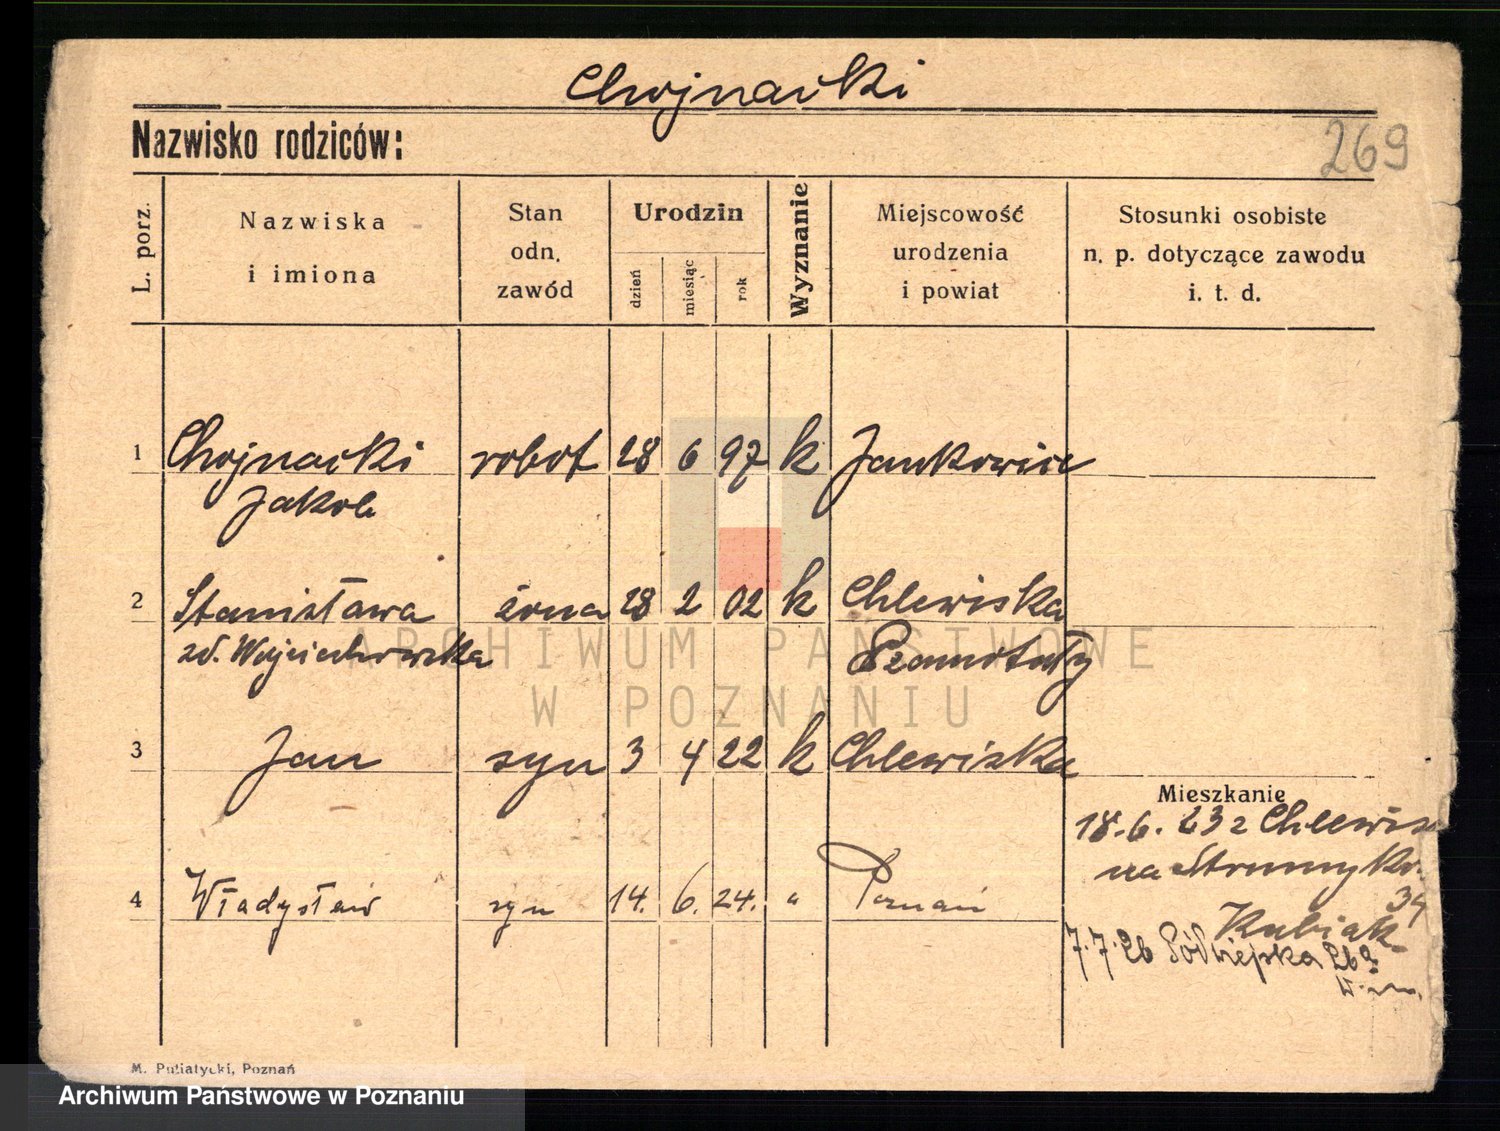 Chojnacki
Nazwisko rodziców:
269
L. porz.
Nazwiska
i imiona
Stan
odn.
zawód
Urodzin
dzień
miesiąc
rok
Wyznanie
Miejscowość
urodzenia
i powiat
Stosunki osobiste
n. p. dotyczące zawodu
i. t. d.
1 Chojnacki robot 28 6 97 k Jankowice
Jakob
2 Stanisława żona 28 2 02 k Chlewiska
zd. Wojciechowska Szamotuły
ARCHIWUM PAŃSTWOWE
W POZNANIU
3 Jan syn 3 4 22 k Chlewiska
Mieszkanie
18.6.23 z Chlewisk
na Strumyko.
34
4 Władysław syn 14. 6. 24. " Poznań
Kubiak
7.7.26 Półwiejska 26
M. Putiatycki, Poznań
Archiwum Państwowe w Poznaniu